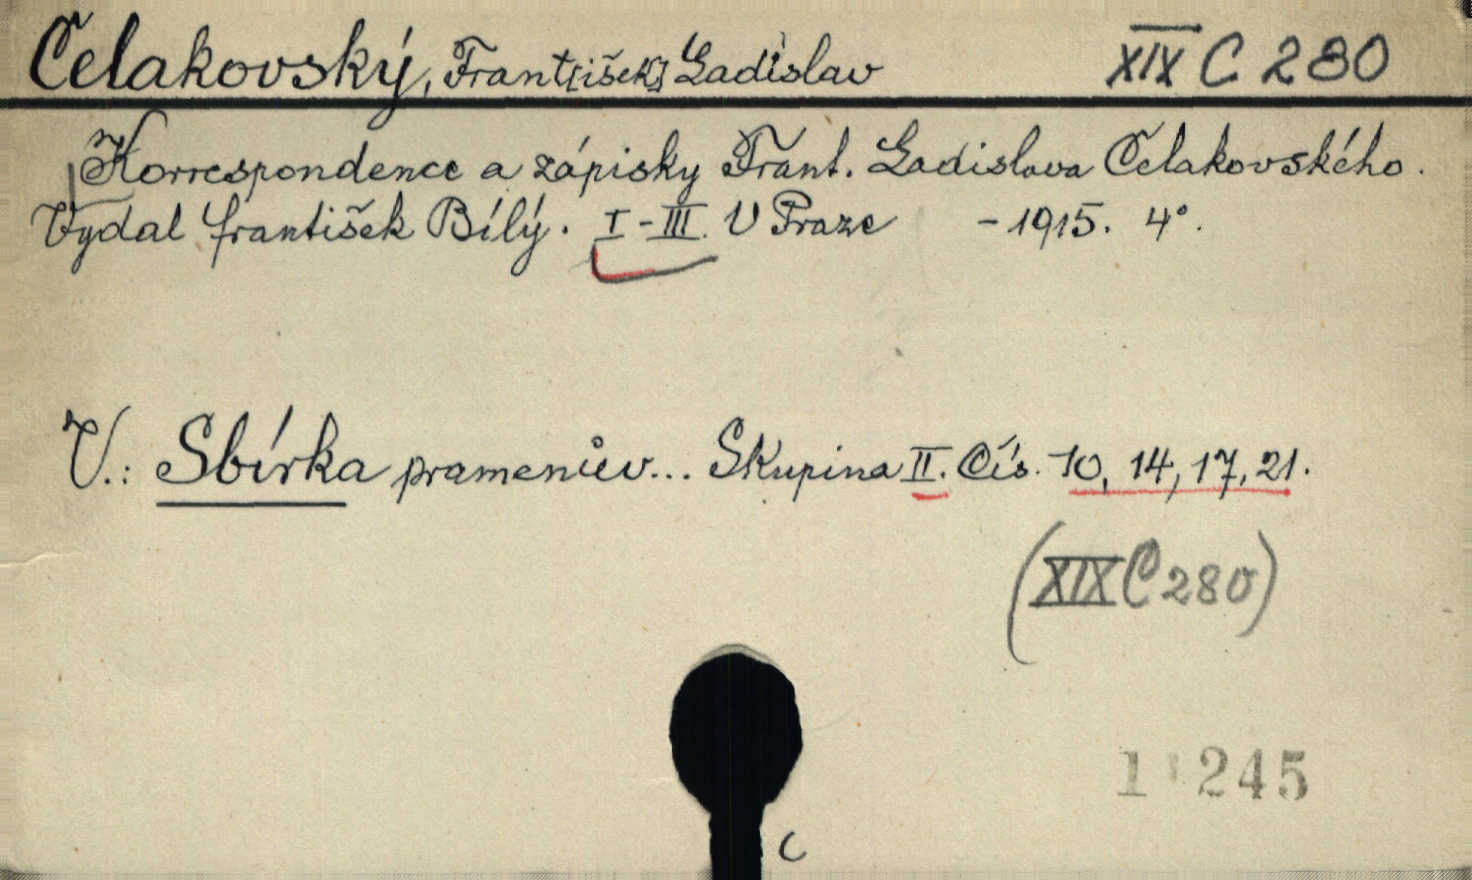 Čelakovský, Frant[išek] Ladislav XIX C 280
Korrespondence a zápisky Frant. Ladislava Čelakovského.
Vydal František Bílý. I-III. V Praze - 1915. 4°.
V.: Sbírka pramenův... Skupina II. Čís. 10, 14, 17, 21.
(XIX C 280)
245
C